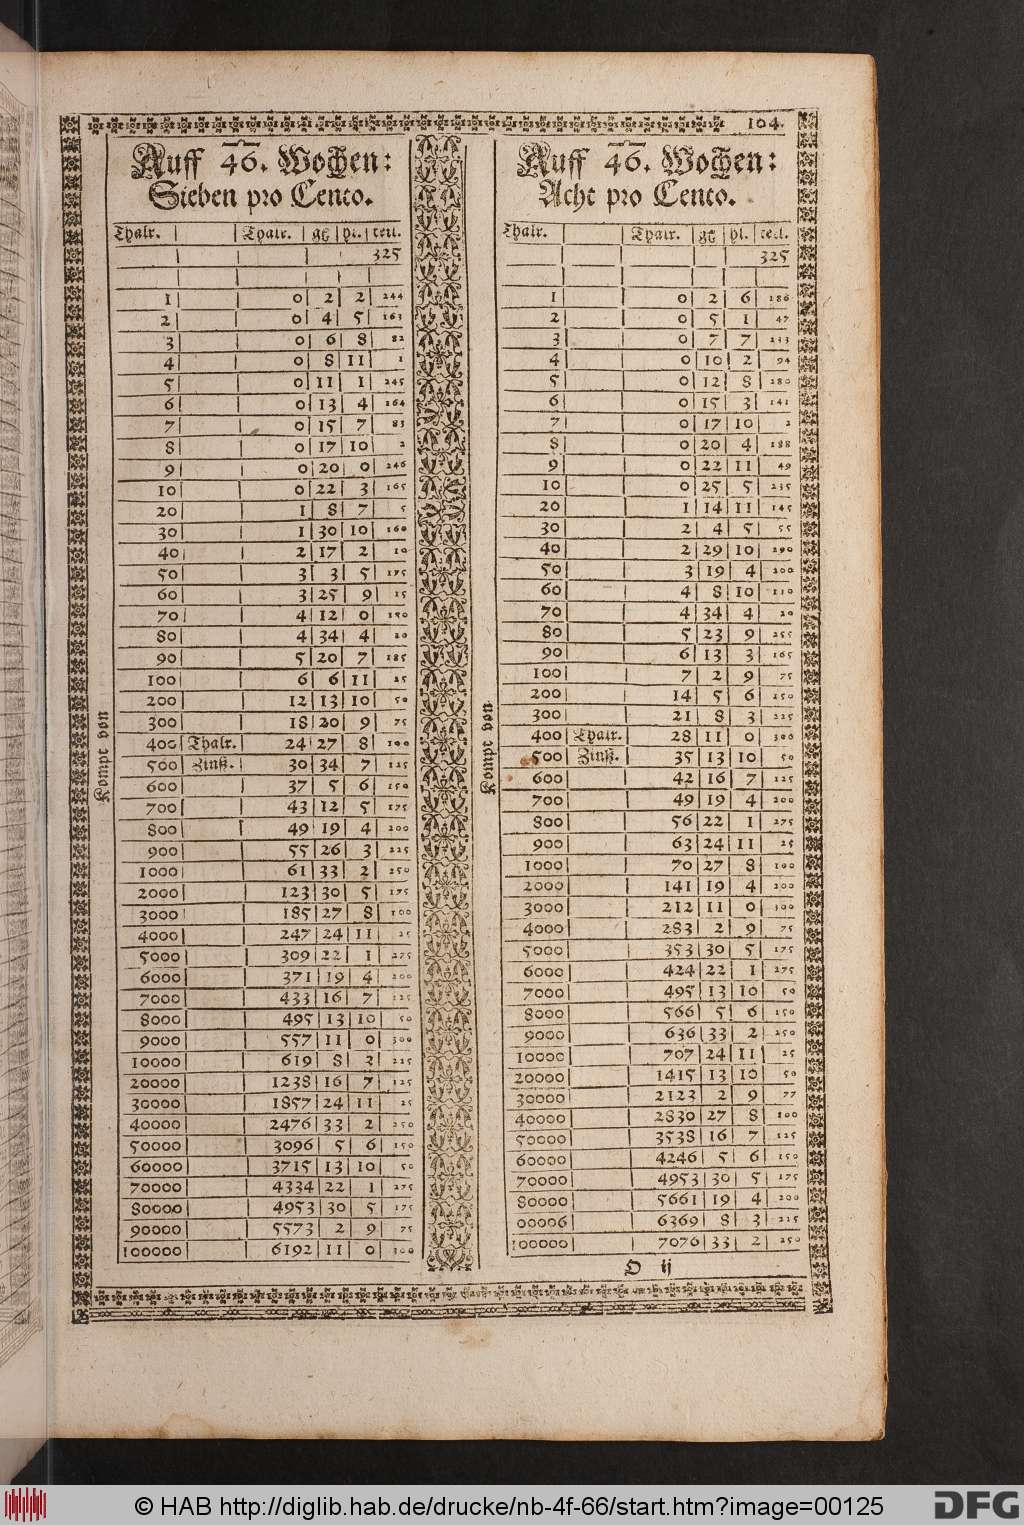 104.
Auff 46. Wochen:
Sieben pro Cento.
Thalr. Thalr. gß hl. teil.
325
1 0 2 2 244
2 0 4 5 163
3 0 6 8 82
4 0 8 11 1
5 0 11 1 245
6 0 13 4 164
7 0 15 7 83
8 0 17 10 2
9 0 20 0 246
10 0 22 3 165
20 1 8 7 5
30 1 30 10 160
40 2 17 2 10
50 3 3 5 175
60 3 25 9 15
70 4 12 0
80 4 34 4 20
90 5 20 7 185
100 6 6 11 25
200 12 13 10 50
300 18 20 9 75
400 Thalr. 24 27 8 100
500 Zinß. 30 34 7 125
600 37 5 6 150
700 43 12 5 175
800 49 19 4 200
900 55 26 3 225
1000 61 33 2 250
2000 123 30 5 175
3000 185 27 8 100
4000 247 24 11 25
5000 309 22 1 275
6000 371 19 4 200
7000 433 16 7 125
8000 495 13 10 50
9000 557 11 0 300
10000 619 8 3 225
20000 1238 16 7 125
30000 1857 24 11 25
40000 2476 33 2 250
50000 3096 5 6 150
60000 3715 13 10 50
70000 4334 22 1 275
80000 4953 30 5 175
90000 5573 2 9 75
100000 6192 11 0 300
Kompt von
Auff 46. Wochen:
Acht pro Cento.
Thalr. Thalr. gß hl. teil.
325
1 0 2 6 186
2 0 5 1 47
3 0 7 7 233
4 0 10 2 94
5 0 12 8 280
6 0 15 3 141
7 0 17 10 2
8 0 20 4 188
9 0 22 11 49
10 0 25 5 235
20 1 14 11 145
30 2 4 5 55
40 2 29 10 290
50 3 19 4 200
60 4 8 10 110
70 4 34 4 20
80 5 23 9 255
90 6 13 3 165
100 7 2 9 75
200 14 5 6 150
300 21 8 3 225
400 Thalr. 28 11 0 300
500 Zinß. 35 13 10 50
600 42 16 7 125
700 49 19 4 200
800 56 22 1 275
900 63 24 11 25
1000 70 27 8 100
2000 141 19 4 200
3000 212 11 0 300
4000 283 2 9 75
5000 353 30 5 175
6000 424 22 1 275
7000 495 13 10 50
8000 566 5 6 150
9000 636 33 2 250
10000 707 24 11 25
20000 1415 13 10 50
30000 2123 2 9 77
40000 2830 27 8 100
50000 3538 16 7 125
60000 4246 5 6 150
70000 4953 30 5 175
80000 5661 19 4 200
00006 6369 8 3 225
100000 7076 33 2 250
Kompt von
O ij
© HAB http://diglib.hab.de/drucke/nb-4f-66/start.htm?image=00125
DFG